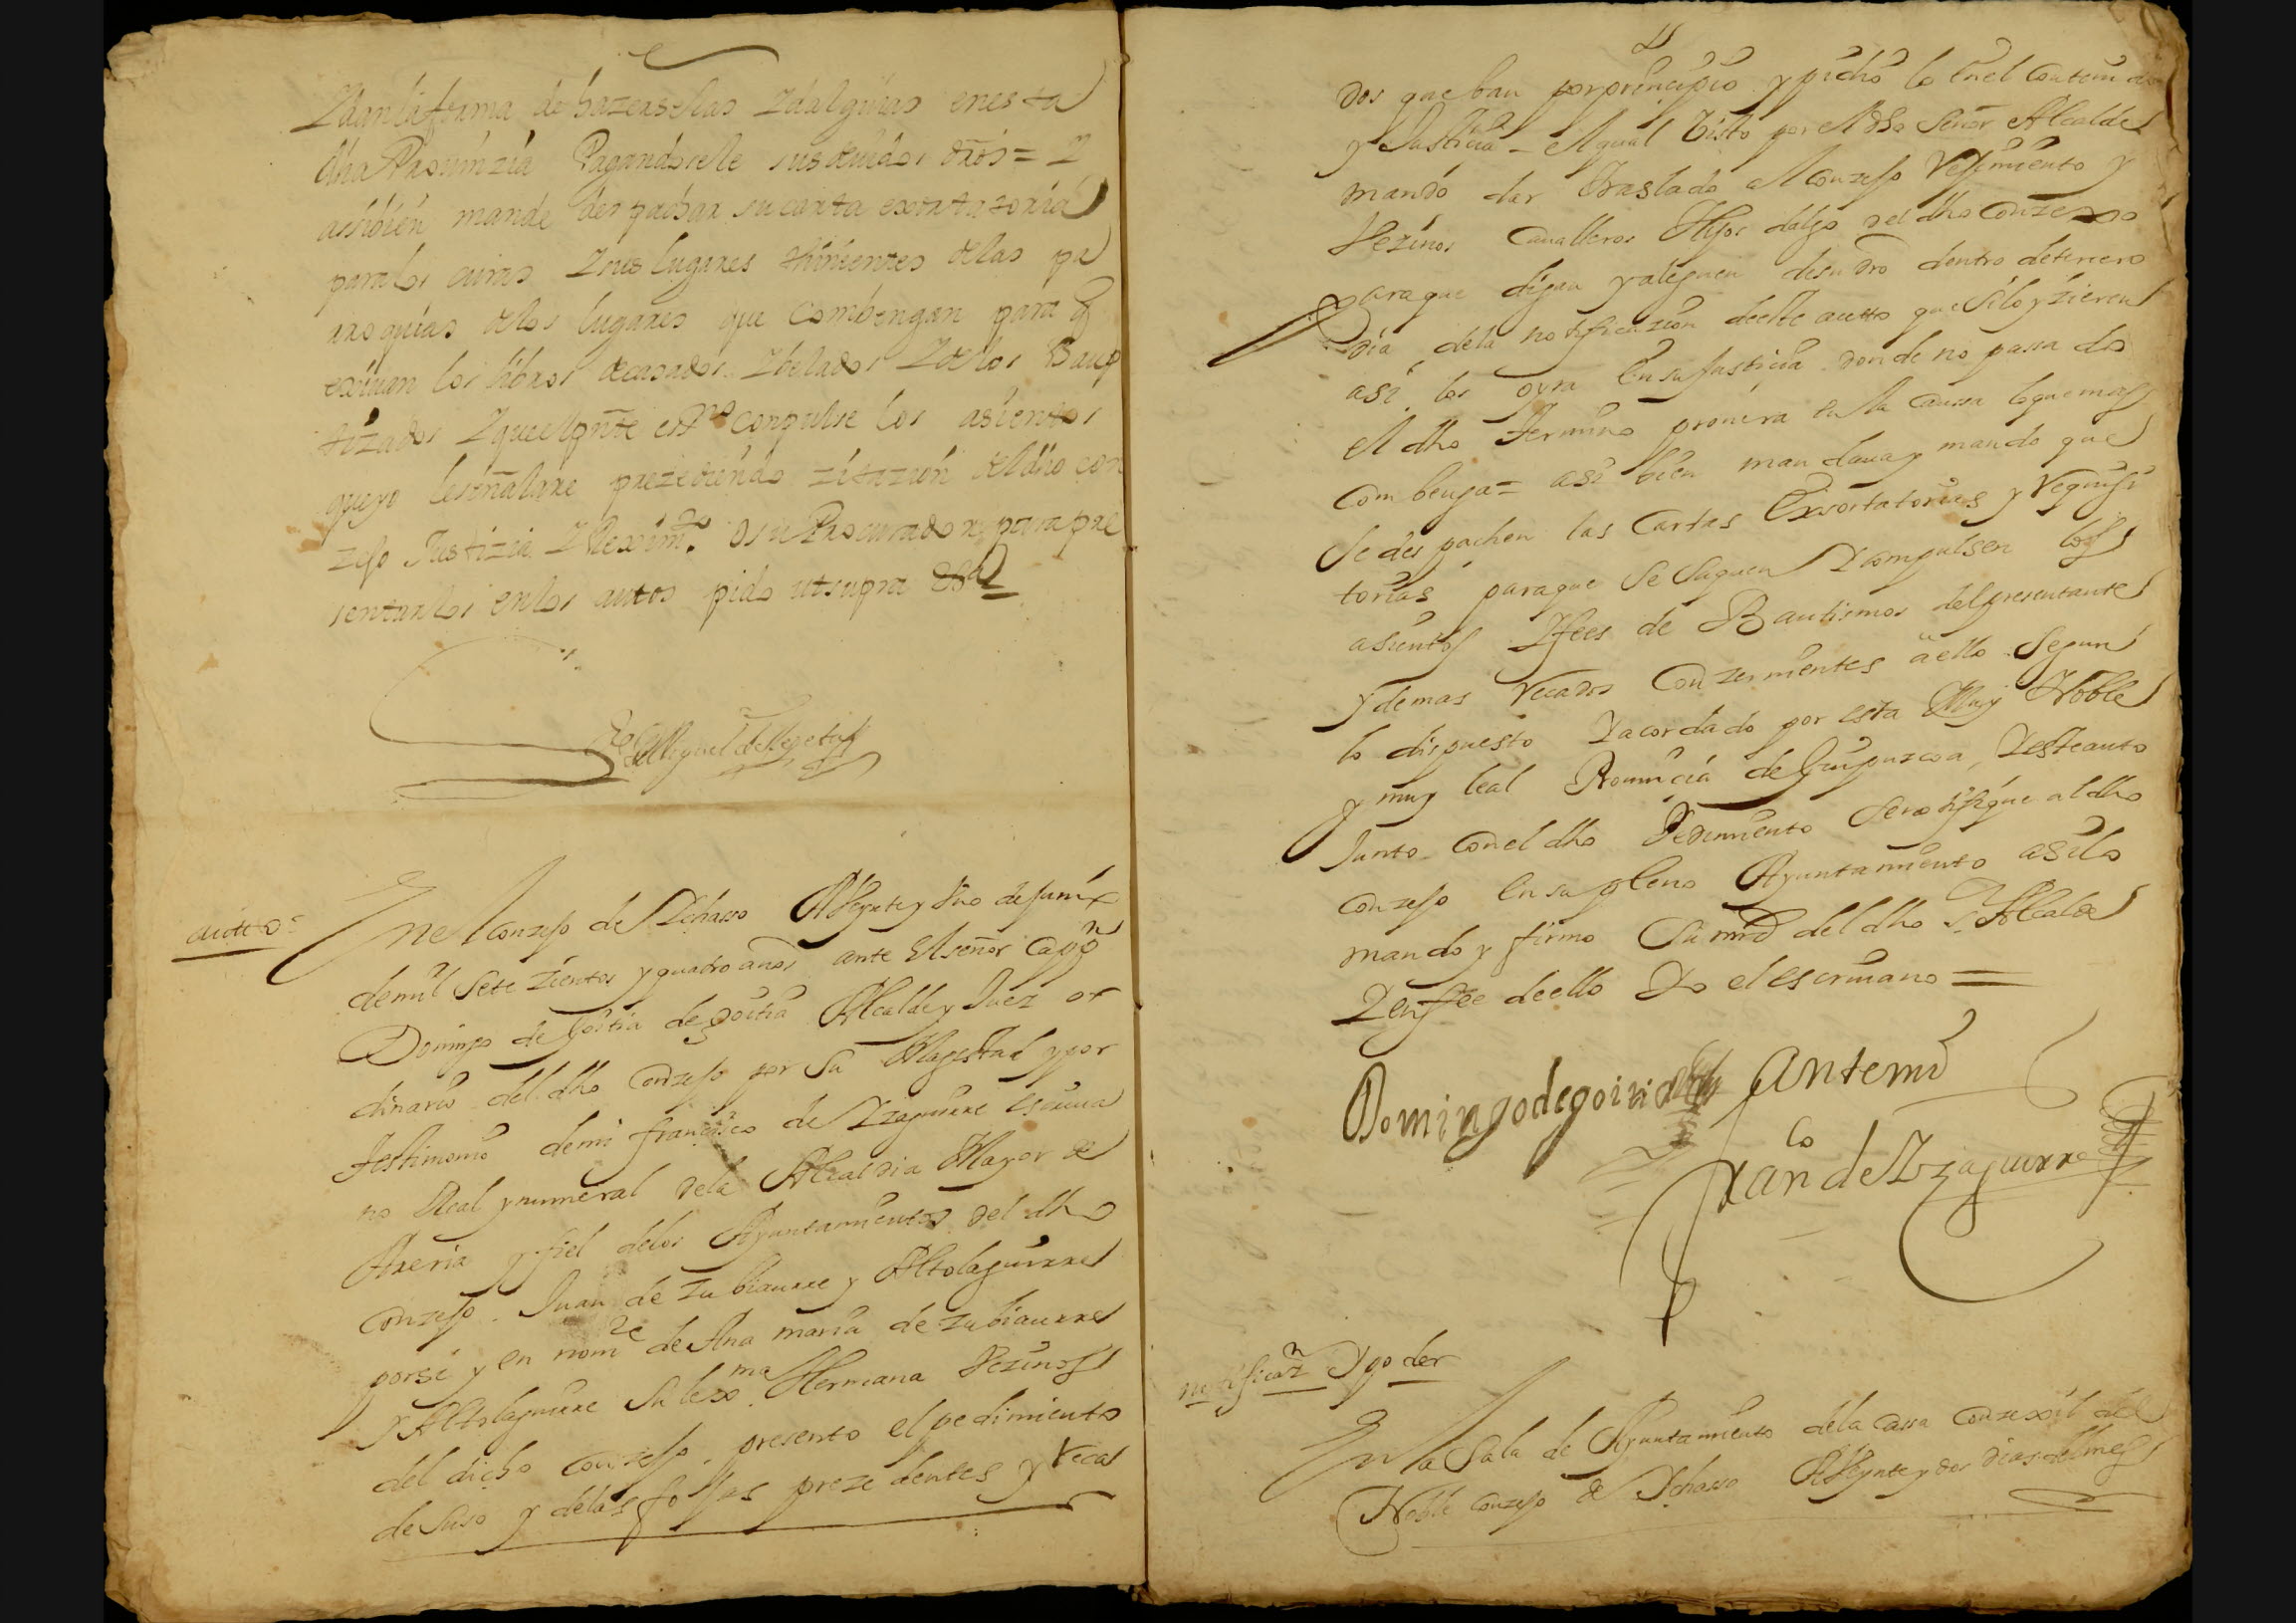 Zdan la forma de hazerse las Zdalguias enesta
dha Prouinzia Pagandosele sus deuidos dros = Z
assibien mande despachar su carta exortatoria
para los curas Z sus lugares thinientes de las pa
rroquias de los lugares que combengan para q
exiuan los libros de casados Zbelados Z de los Baup
tizados Z que el pnte essno conpulse los asientos
que yo le señalare prezediendo zitazion del dho con
zejo Justizia Z Reximto o su Procurador para pre
sentarlos en los autos pido utsupra
Miguel de
autto
En el Conzejo de Ychasso A Veynte y Vno de Jun
de mill Sete Zientos y quatro años ante El señor Cappn
Domingo de Goitia de goitia Alcalde y Juez or
dinario del dho Conzejo por Su Magestad y por
testimonio de mi françisco de Yzaguirre escriua
no Real y numeral de la Alcaldia Mayor de
Areria y fiel de los Ayuntamientos del dho
Conzejo. Juan de Zubiaurre y Altolaguirre
por si y en nomre de Ana maria de Zubiaurre
y Altolaguirre Su lexma Hermana Vezinos
del dicho Conzejo, presento el pedimiento
de Suso y de las fojas prezedentes y reca
dos que ban por prencipio y pidio lo en el Contenido
y Justicia = el qual Visto por el dho Señor Alcalde
mando dar traslado al Conzejo Reximiento y
Vezinos Caualleros Hijos dalgo del dho Conzexo
para que digan y aleguen de su dro dentro de terzero
dia de la notificazion deeste autto que Si lo yzieren
asi los oyra En su Justicia donde no passado
el dho termino prouera en la Caussa lo que mas
Combenga = asi bien mandaua y mando que
Se des pachen las Cartas Exsortatorias y requisi
torias para que Se Saquen Y Compulsen los
asientos Y fees de Bautismos del presentante
y demas recados Conzernientes a ello Segun
lo dispuesto Y acordado por esta Muy Noble
y muy leal Prouincia de Guipuzcoa, Y este auto
Junto Con el dho Pedimiento Se notifique al dho
Conzejo En su pleno Ayuntamiento asi lo
mando y firmo Su mrd del dho Sr Alcalde
Y en fee de ello Yo el escriuano =
Domingo de goitia Ante mi
Franco de Yzaguirre
notificazn Y poder
En la Sala de Ayuntamiento de la Cassa Conzexil del
Noble Conzejo de Ychasso A Veynte y dos dias del mes